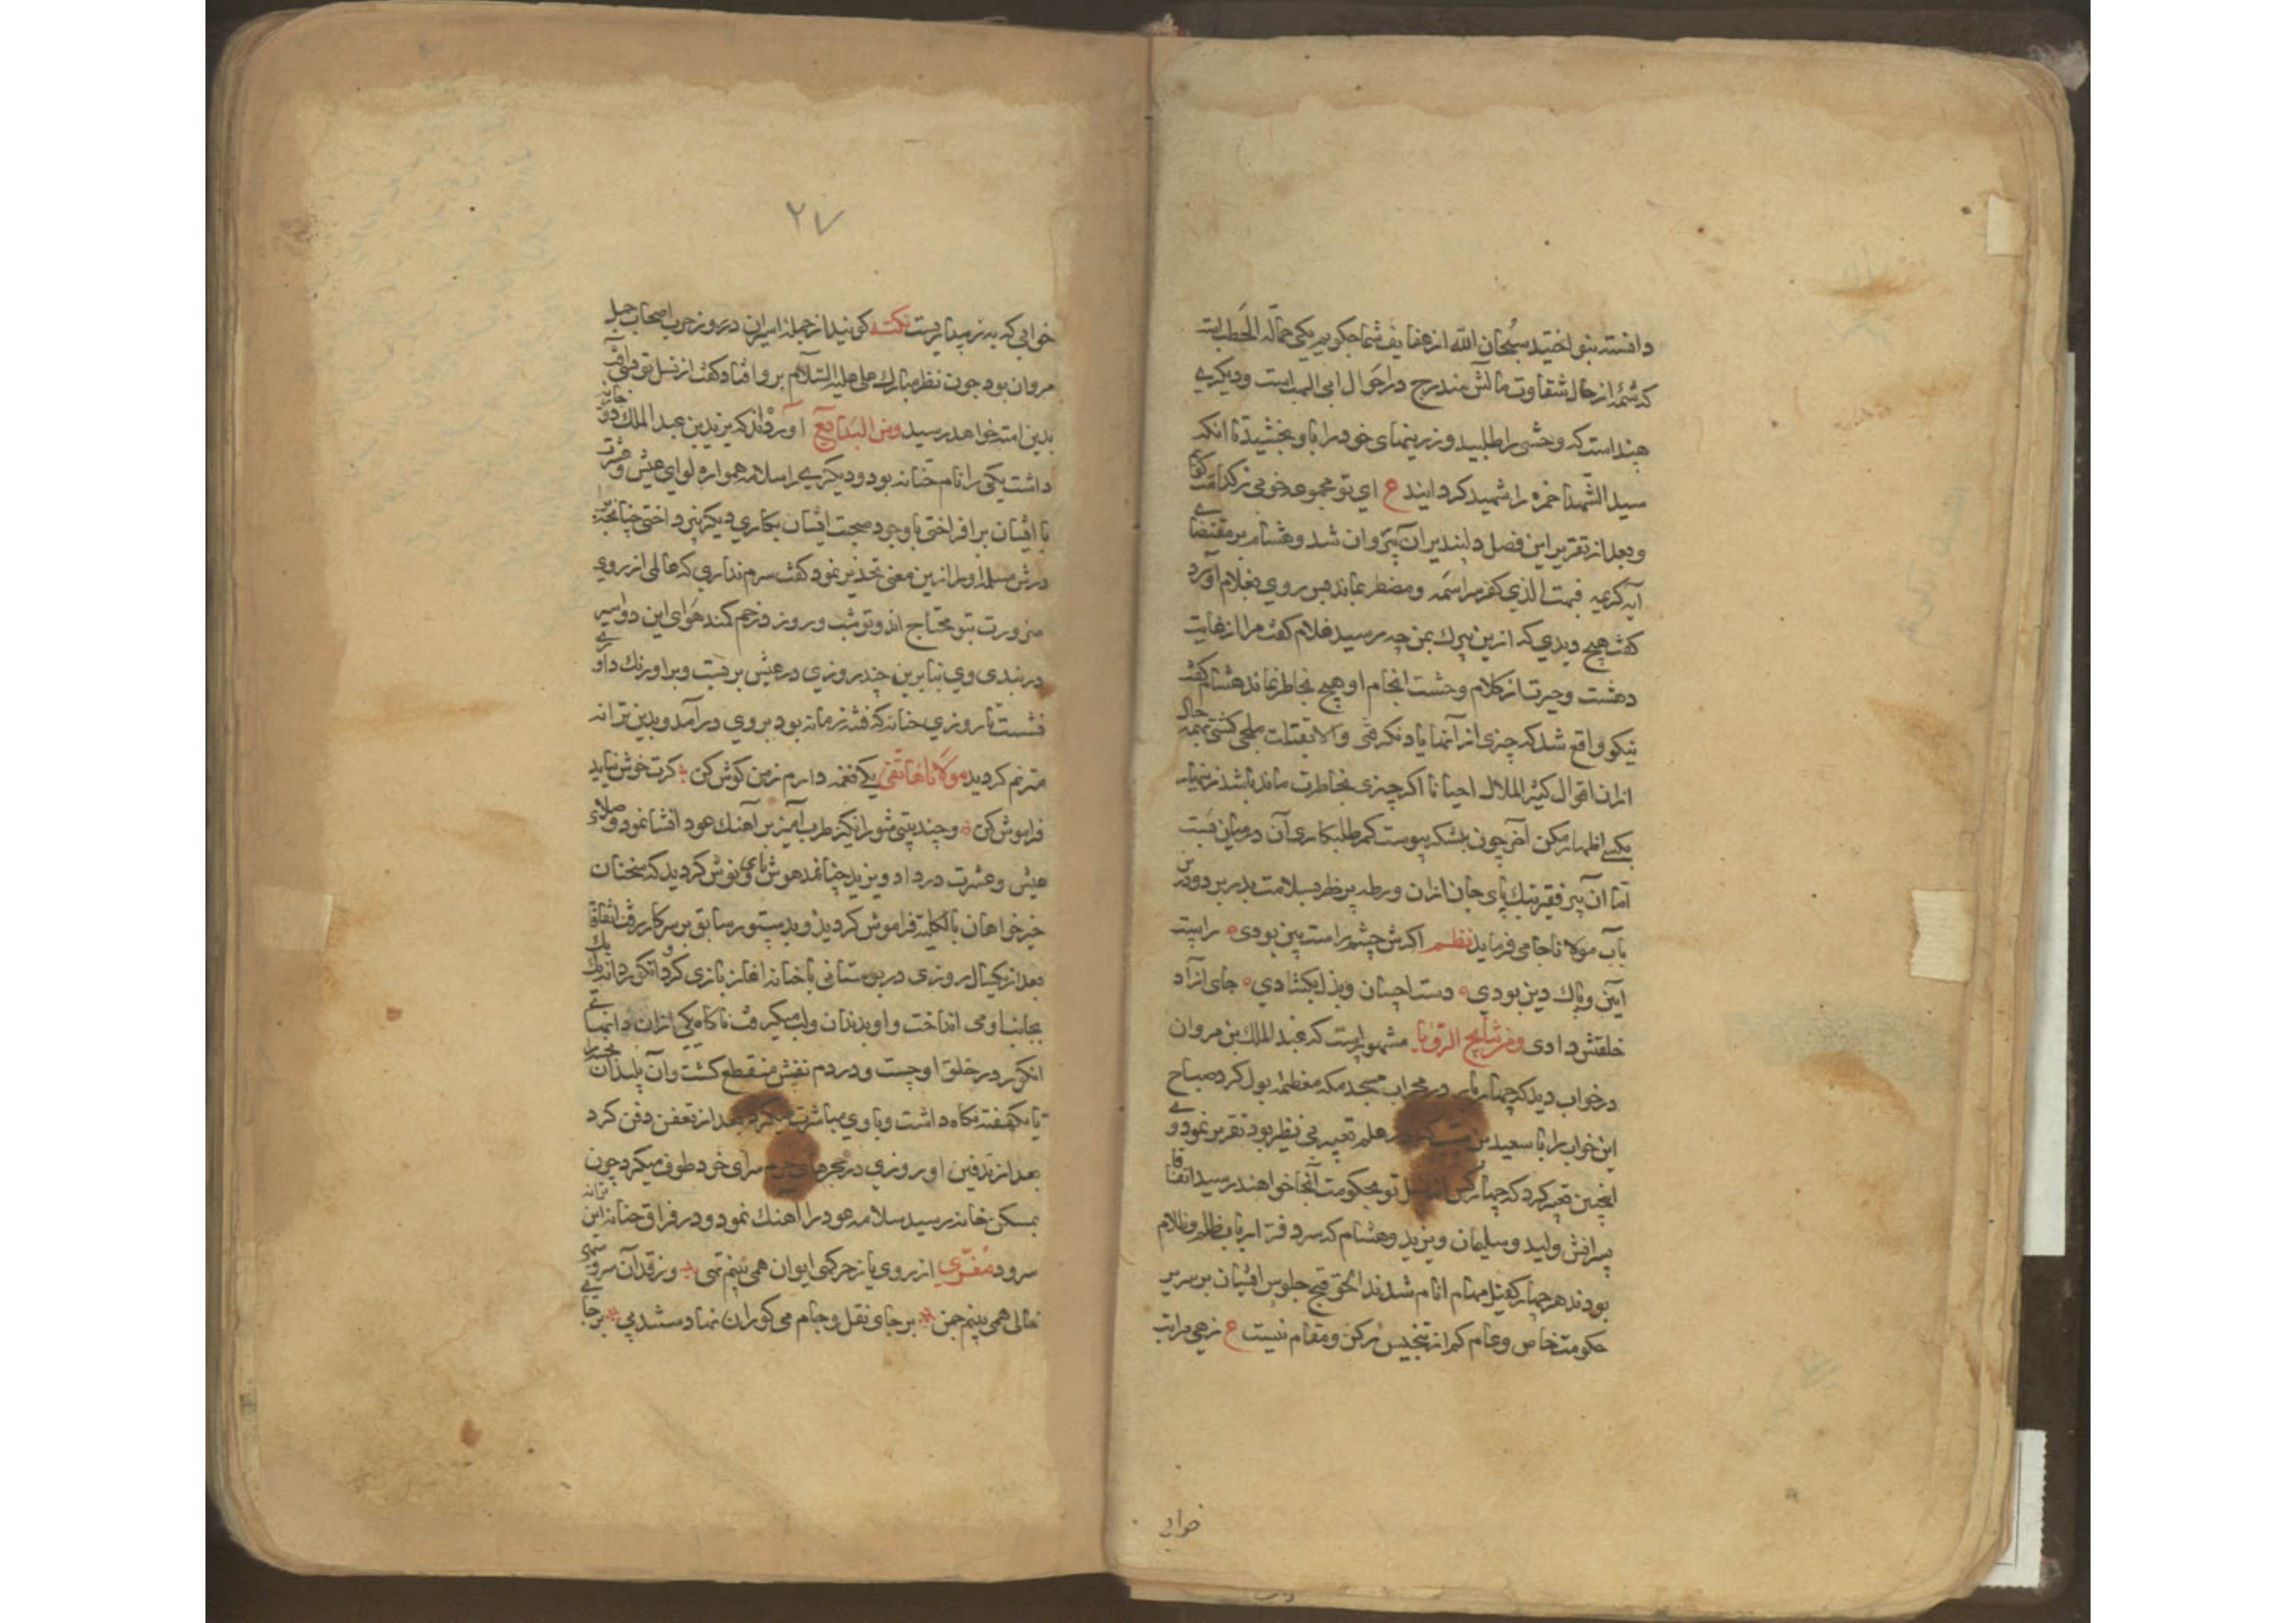 دانسته بنواختید سبحان الله از عفایف شما چکویم یکی حمالة الحطبست
که شمهٔ از حال شقاوت مالش مندرج در احوال ابی الهبست و دیگری
هنداست که وحشی را طلبید و زرینهای خود را باو بخشید تا انکه
سید الشهدا حمزه را شهید کردانید ع ای تو مجموعه خوبی ز کدامت کویم
و بعد از تقریر این فصل دلپذیر آن پیر روان شد و هشام بر مقتضای
آیه کریمه فبهت الذی کفر سراسمه و مضطر بماند پس روی بغلام آورد
کفت هیچ دیدی که ازین پیرک بمن چه رسید غلام کفت مرا از غایت
دهشت و حیرت از کلام وحشت انجام او هیچ بخاطر نماند هشام کفت
نیکو واقع شد که چیزی از آنها یاد نکرفتی والا
ازان اقوال کثیر الملال احیانا اکر چیزی بخاطرت مانده باشد زنهار
بکسی اظهار مکن آخر چون بلشکر پیوست کمر طلبکاری آن در میان بست
اما آن پیر فقیر بتک پای جان ازان ورطه پر خطر بسلامت بدر برد و درین
باب مولانا جامی فرماید نظم اکرش چشم راست بین بودی راست
آیین و پاک دین بودی دست احسان و بذل بکشادی جای آزاد
خلقتش دادی ومن نتایج الرؤیا مشهورست که عبد الملک بن مروان
در خواب دید که چهار بار در محراب مسجد مکه معظمه بول کرد صباح
این خواب را با سعید بن که در علم تعبیر بی نظیر بود تقریر نمود وی
اینچنین تعبیر کرد که چهار کس از نسل تو بحکومت آنجا خواهند رسید اتفاقا
پسرانش ولید و سلیمان و یزید و هشام که سردفتر ارباب ظلم و ظلام
بودند هر چهار کفیل مهام انام شدند الحق قبح جلوس ایشان بر سریر
حکومت خاص و عام کم از تنجیس رکن و مقام نیست ع زهی مراتب
خوابی
۲۷
خوابی که به ز بیداریست نکته کویند از جملهٔ اسیران در روز حرب اصحاب جمل
مروان بود چون نظر مبارک علی علیه السلام بر وی افتاد کفت از نسل تو
بدین امت خواهد رسید ومن البدایع آورده اند که یزید بن عبد الملک دو جاریه
داشت یکی را نام حنانه بود و دیکری را سلامه همواره لوای عیش و عشرت
با ایشان برافراختی با وجود صحبت ایشان بکاری دیکر نپرداختی چنانچه
مسلمه او را ازین معنی تحذیر نمود کفت شرم نداری که عالمی از روی
ضرورت بتو محتاج اند و تو شب و روز در جم کمند هوای این دو اسیر
در بندی وی بنابرین چند روزی در عیش بر بست و بر اورنک داوری
نشست تا روزی حنانه که فتنهٔ زمانه بود بروی در آمد و بدین ترانه
مترنم کردید مولانا هاتفی یکی نغمه دارم ز من کوش کن کرت خوش نیاید
فراموش کن و چند بیتی شورانکیز طرب آمیز بر آهنک عود انشا نمود و صلای
عیش و عشرت در داد و یزید چنانمدهوش نای و نوش کردید که سخنان
خیرخواهان بالکلیه فراموش کردید و بدستور سابق بر سر کار رفت اتفاقا
بعد از یکسال روزی در بوستانی با حنانه اغاز بازی کرد و انکور دانه یک یک
بجانب او می انداخت و او بدندان و لب میکرفت ناکاه یکی ازان دانهای
انکور در خلق او جست و در دم نفسش منقطع کشت و آن پلید آن جسد را
تا یکهفته نکاه داشت و با وی مباشرت میکرد بعد از تعفن دفن کرد
بعد از تدفین او روزی در حجرهای حرم سرای خود طوف میکرد چون
بمسکن حنانه رسید سلامه عود را آهنک نمود و در فراق حنانه این ترانه
سرود معزی از روی یار خرکهی ایوان همی بینم تهی وز قد آن سرو سهی
خالی همی بینم چمن بر جای نقل و جام می کوران نهادستند پی بر جای